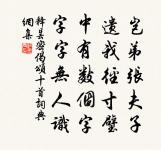 豈弟張夫子
遺我徑寸璧
中有數個字
字字無人識
釋昙密偈頌十首詞典
網集